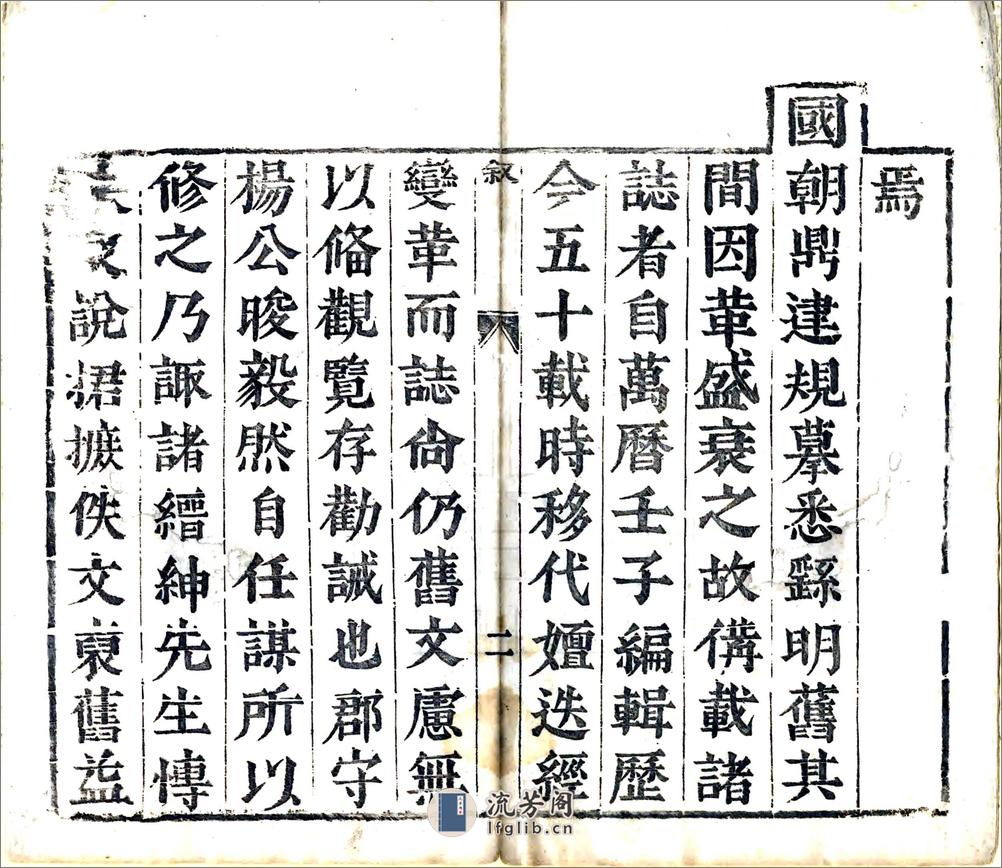 焉
國朝鼎建規摹悉繇明舊其
間因革盛衰之故備載諸
誌者自萬曆壬子編輯歷
今五十載時移代嬗迭經
叙
二
變革而誌尚仍舊文慮無
以偹觀覽存勸誡也郡守
楊公晙毅然自任謀所以
修之乃諏諸縉紳先生愽
說捃摭佚文裒舊益
流芳阁
lfglib.cn